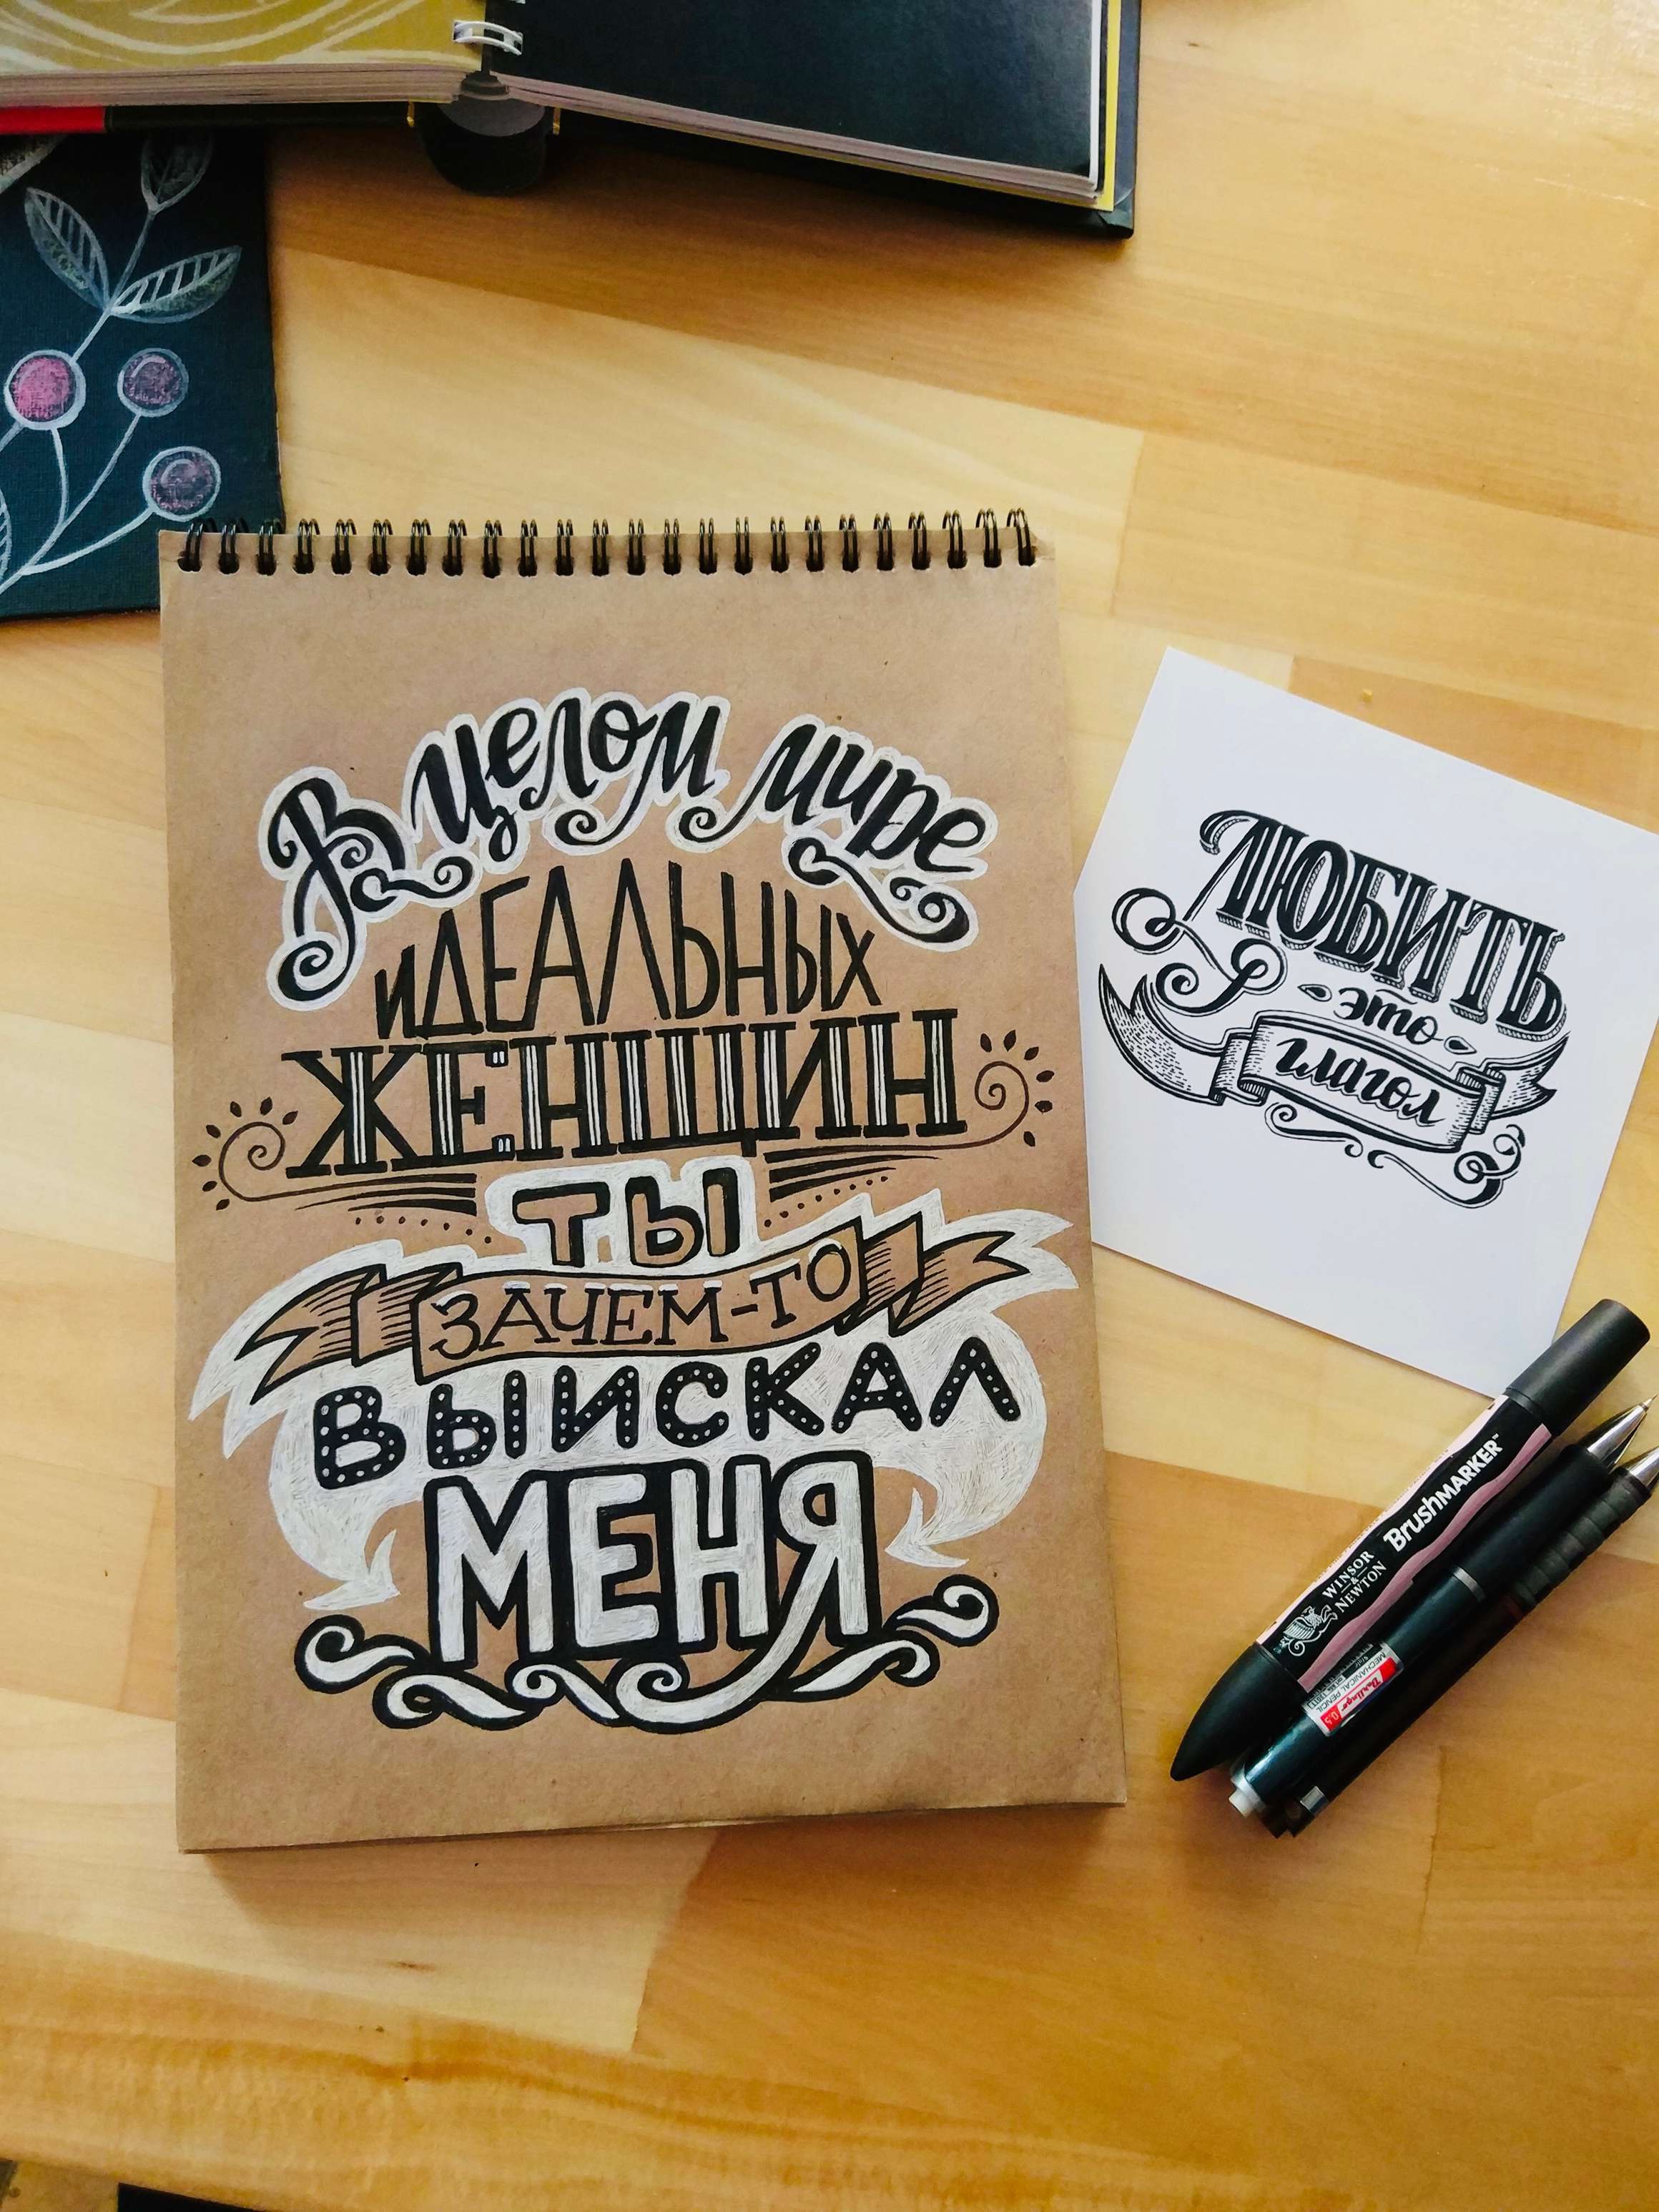 В целом мире
ИДЕАЛЬНЫХ
ЖЕНЩИН
ТЫ
ЗАЧЕМ-ТО
ВЫИСКАЛ
МЕНЯ
ЛЮБИТЬ
это
глагол
BrushMARKER™
WINSOR
&
NEWTON
MECHANICAL PENCIL
Berlingo 0,5